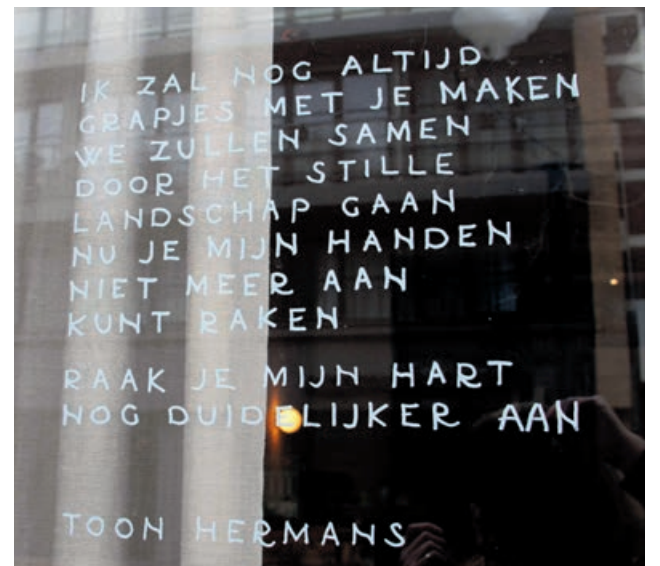 IK ZAL NOG ALTIJD
GRAPJES MET JE MAKEN
WE ZULLEN SAMEN
DOOR HET STILLE
LANDSCHAP GAAN
NU JE MIJN HANDEN
NIET MEER AAN
KUNT RAKEN
RAAK JE MIJN HART
NOG DUIDELIJKER AAN
TOON HERMANS